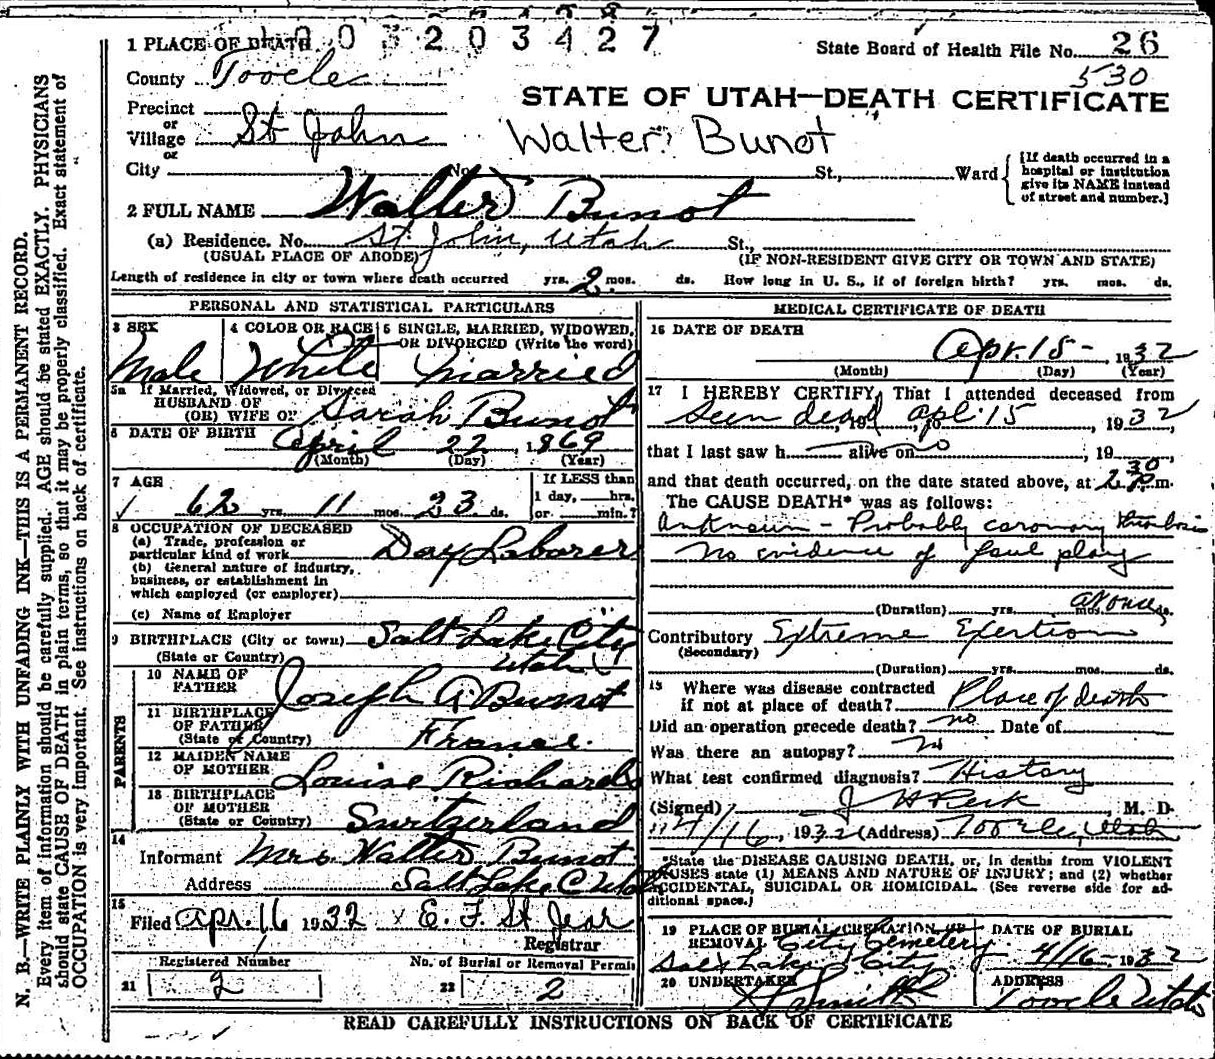 1 0 0 3 2 0 3 4 2 7
1 PLACE OF DEATH
State Board of Health File No. 26
County Tooele
530
STATE OF UTAH—DEATH CERTIFICATE
Precinct
or
Village St John
Walter Bunot
or
City No. St., Ward
[If death occurred in a
hospital or institution
give its NAME instead
of street and number.]
2 FULL NAME Walter Bunot
(a) Residence. No. St. John, Utah St.,
(USUAL PLACE OF ABODE)
(IF NON-RESIDENT GIVE CITY OR TOWN AND STATE)
Length of residence in city or town where death occurred yrs. 2 mos. ds. How long in U. S., if of foreign birth? yrs. mos. ds.
PERSONAL AND STATISTICAL PARTICULARS
3 SEX
Male
4 COLOR OR RACE
White
5 SINGLE, MARRIED, WIDOWED,
OR DIVORCED (Write the word)
Married
5a If Married, Widowed, or Divorced
HUSBAND OF
(OR) WIFE OF Sarah Bunot
6 DATE OF BIRTH April 22 1869
(Month) (Day) (Year)
7 AGE
62 yrs. 11 mos. 23 ds.
If LESS than
1 day, hrs.
or min.?
8 OCCUPATION OF DECEASED
(a) Trade, profession or
particular kind of work Day Laborer
(b) General nature of industry,
business, or establishment in
which employed (or employer)
(c) Name of Employer
9 BIRTHPLACE (City or town) Salt Lake City
(State or Country) Utah
PARENTS
10 NAME OF
FATHER Joseph A. Bunot
11 BIRTHPLACE
OF FATHER
(State or Country) France.
12 MAIDEN NAME
OF MOTHER Louise Richards
13 BIRTHPLACE
OF MOTHER
(State or Country) Switzerland
14
Informant Mrs. Walter Bunot
Address Salt Lake C. Utah
15
Filed Apr. 16 1932 x E. F. St Jeor
Registrar
Registered Number
21 2
No. of Burial or Removal Permit
22 2
MEDICAL CERTIFICATE OF DEATH
16 DATE OF DEATH
Apr. 15 - , 1932
(Month) (Day) (Year)
17 I HEREBY CERTIFY, That I attended deceased from
Seen dead, 19 , to Apl. 15 , 1932,
that I last saw h alive on , 19
and that death occurred, on the date stated above, at 2 30 P m.
The CAUSE DEATH* was as follows:
Unknown - Probably coronary thrombosis
No evidence of foul play
(Duration) yrs. mos. at once ds.
Contributory Extreme Exertion
(Secondary)
(Duration) yrs. mos. ds.
18 Where was disease contracted
if not at place of death? Place of death
Did an operation precede death? no Date of
Was there an autopsy? No
What test confirmed diagnosis? History
(Signed) J H Peck , M. D.
4/16, 1932 (Address) Tooele, Utah
*State the DISEASE CAUSING DEATH, or, in deaths from VIOLENT
CAUSES state (1) MEANS AND NATURE OF INJURY; and (2) whether
ACCIDENTAL, SUICIDAL OR HOMICIDAL. (See reverse side for ad-
ditional space.)
19 PLACE OF BURIAL, CREMATION, OR
REMOVAL City Cemetery
Salt Lake City
DATE OF BURIAL
4/16- 1932
20 UNDERTAKER
ADDRESS
Tooele Utah
READ CAREFULLY INSTRUCTIONS ON BACK OF CERTIFICATE
N. B.—WRITE PLAINLY WITH UNFADING INK—THIS IS A PERMANENT RECORD.
Every item of information should be carefully supplied. AGE should be stated EXACTLY. PHYSICIANS
should state CAUSE OF DEATH in plain terms, so that it may be properly classified. Exact statement of
OCCUPATION is very important. See instructions on back of certificate.